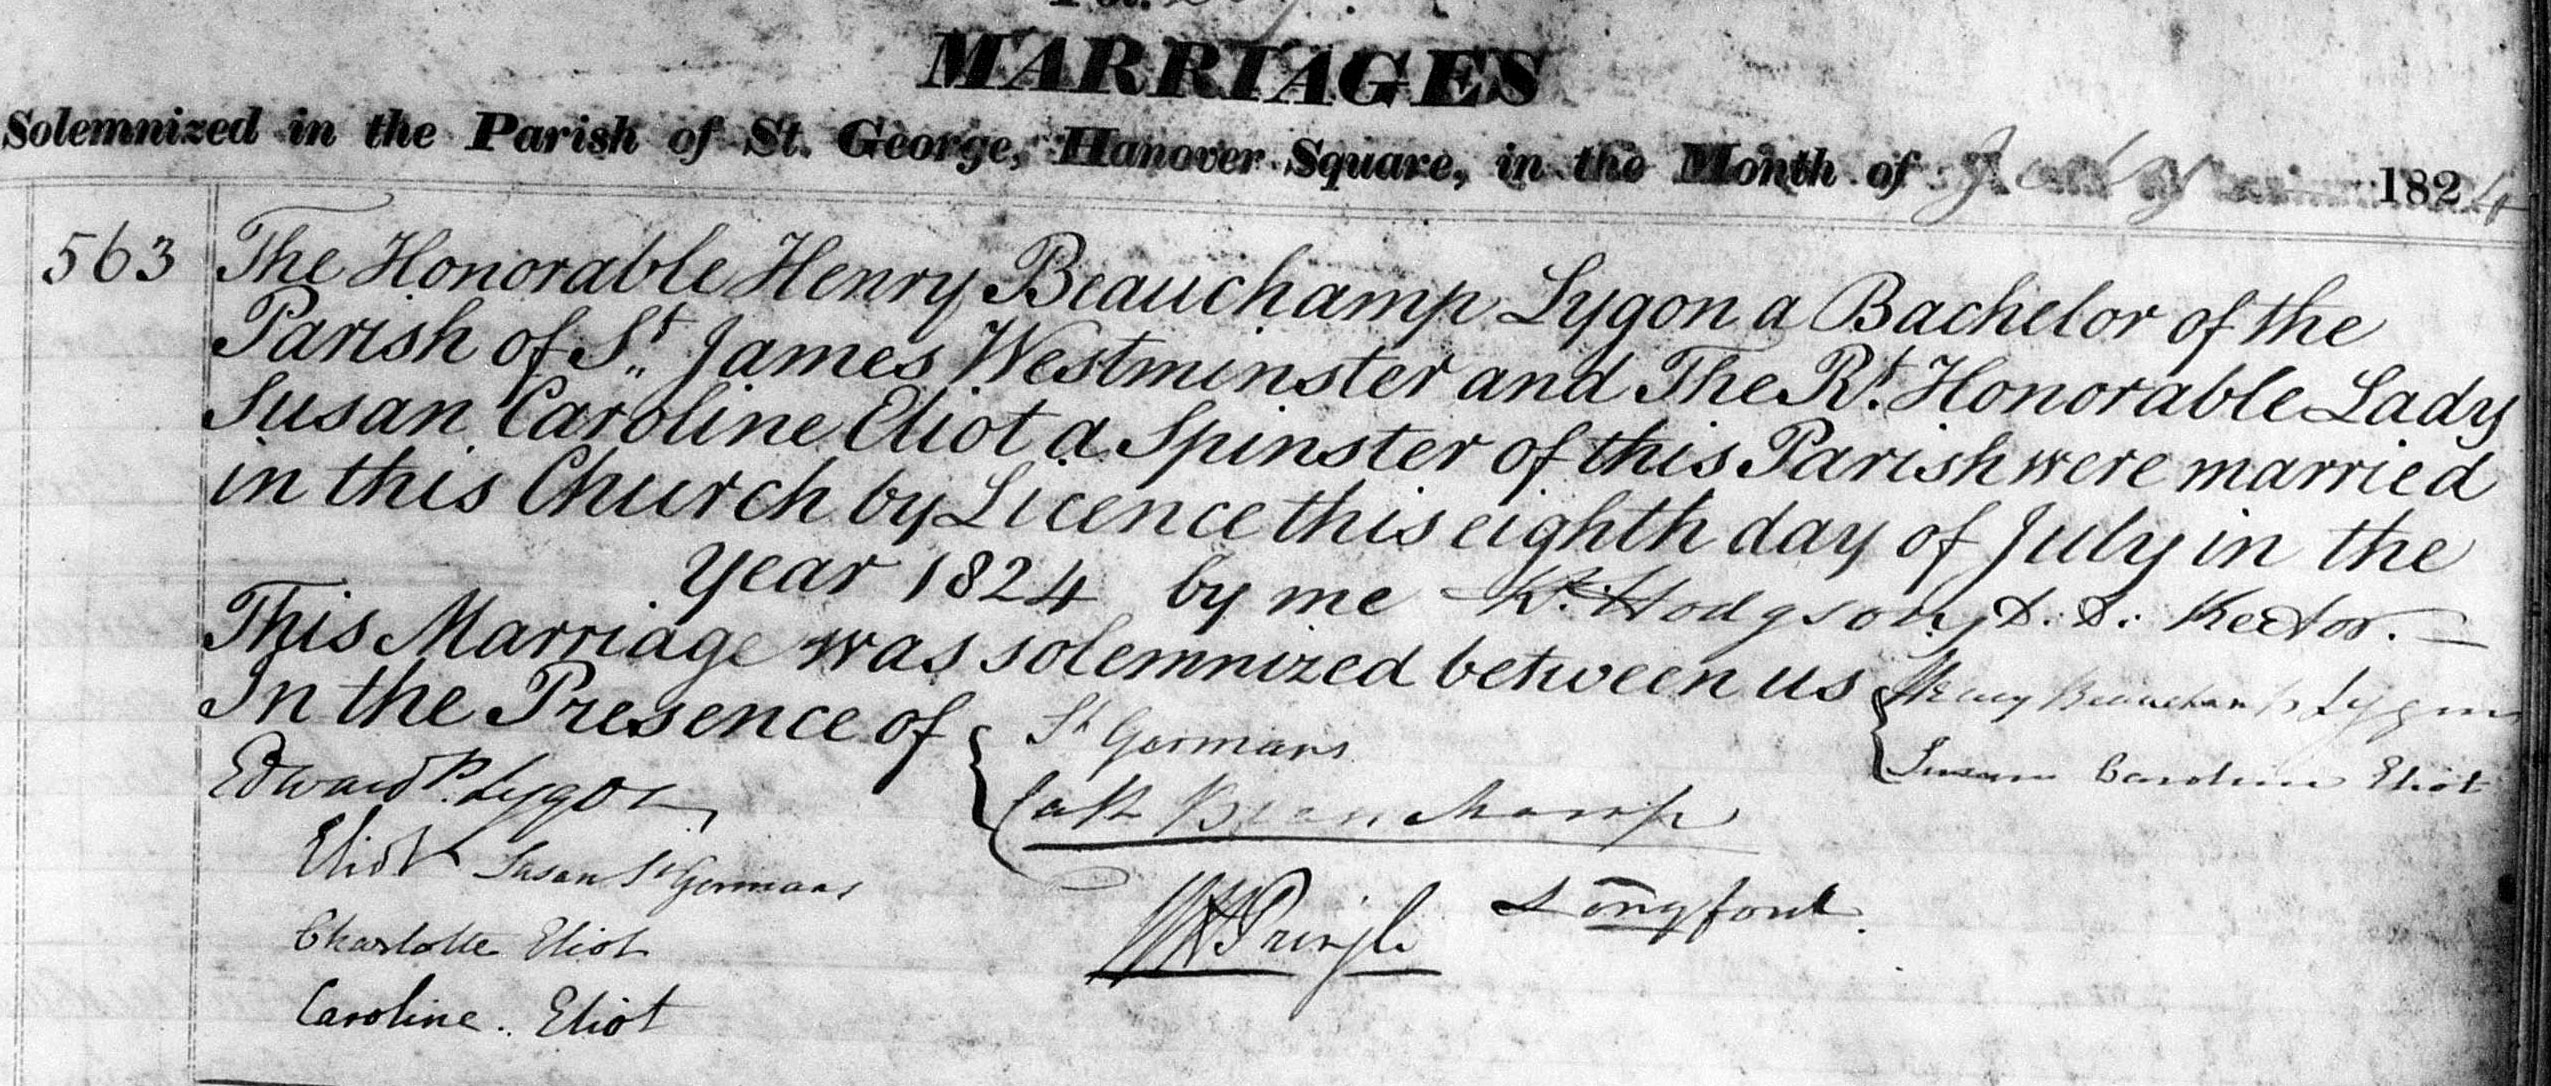 MARRIAGES
Solemnized in the Parish of St. George, Hanover Square, in the Month of July 1824
563 The Honorable Henry Beauchamp Lygon a Bachelor of the
Parish of St. James Westminster and The Rt. Honorable Lady
Susan Caroline Eliot a Spinster of this Parish were married
in this Church by Licence this eighth day of July in the
Year 1824 by me R. Hodgson, D. D. Rector.
This Marriage was solemnized between us Henry Beauchamp Lygon
Susan Caroline Eliot
In the Presence of St Germans
Edward P. Lygon
Cath Beauchamp
Eliot Susan St Germans
Longford.
Pringle
Charlotte Eliot
Caroline. Eliot